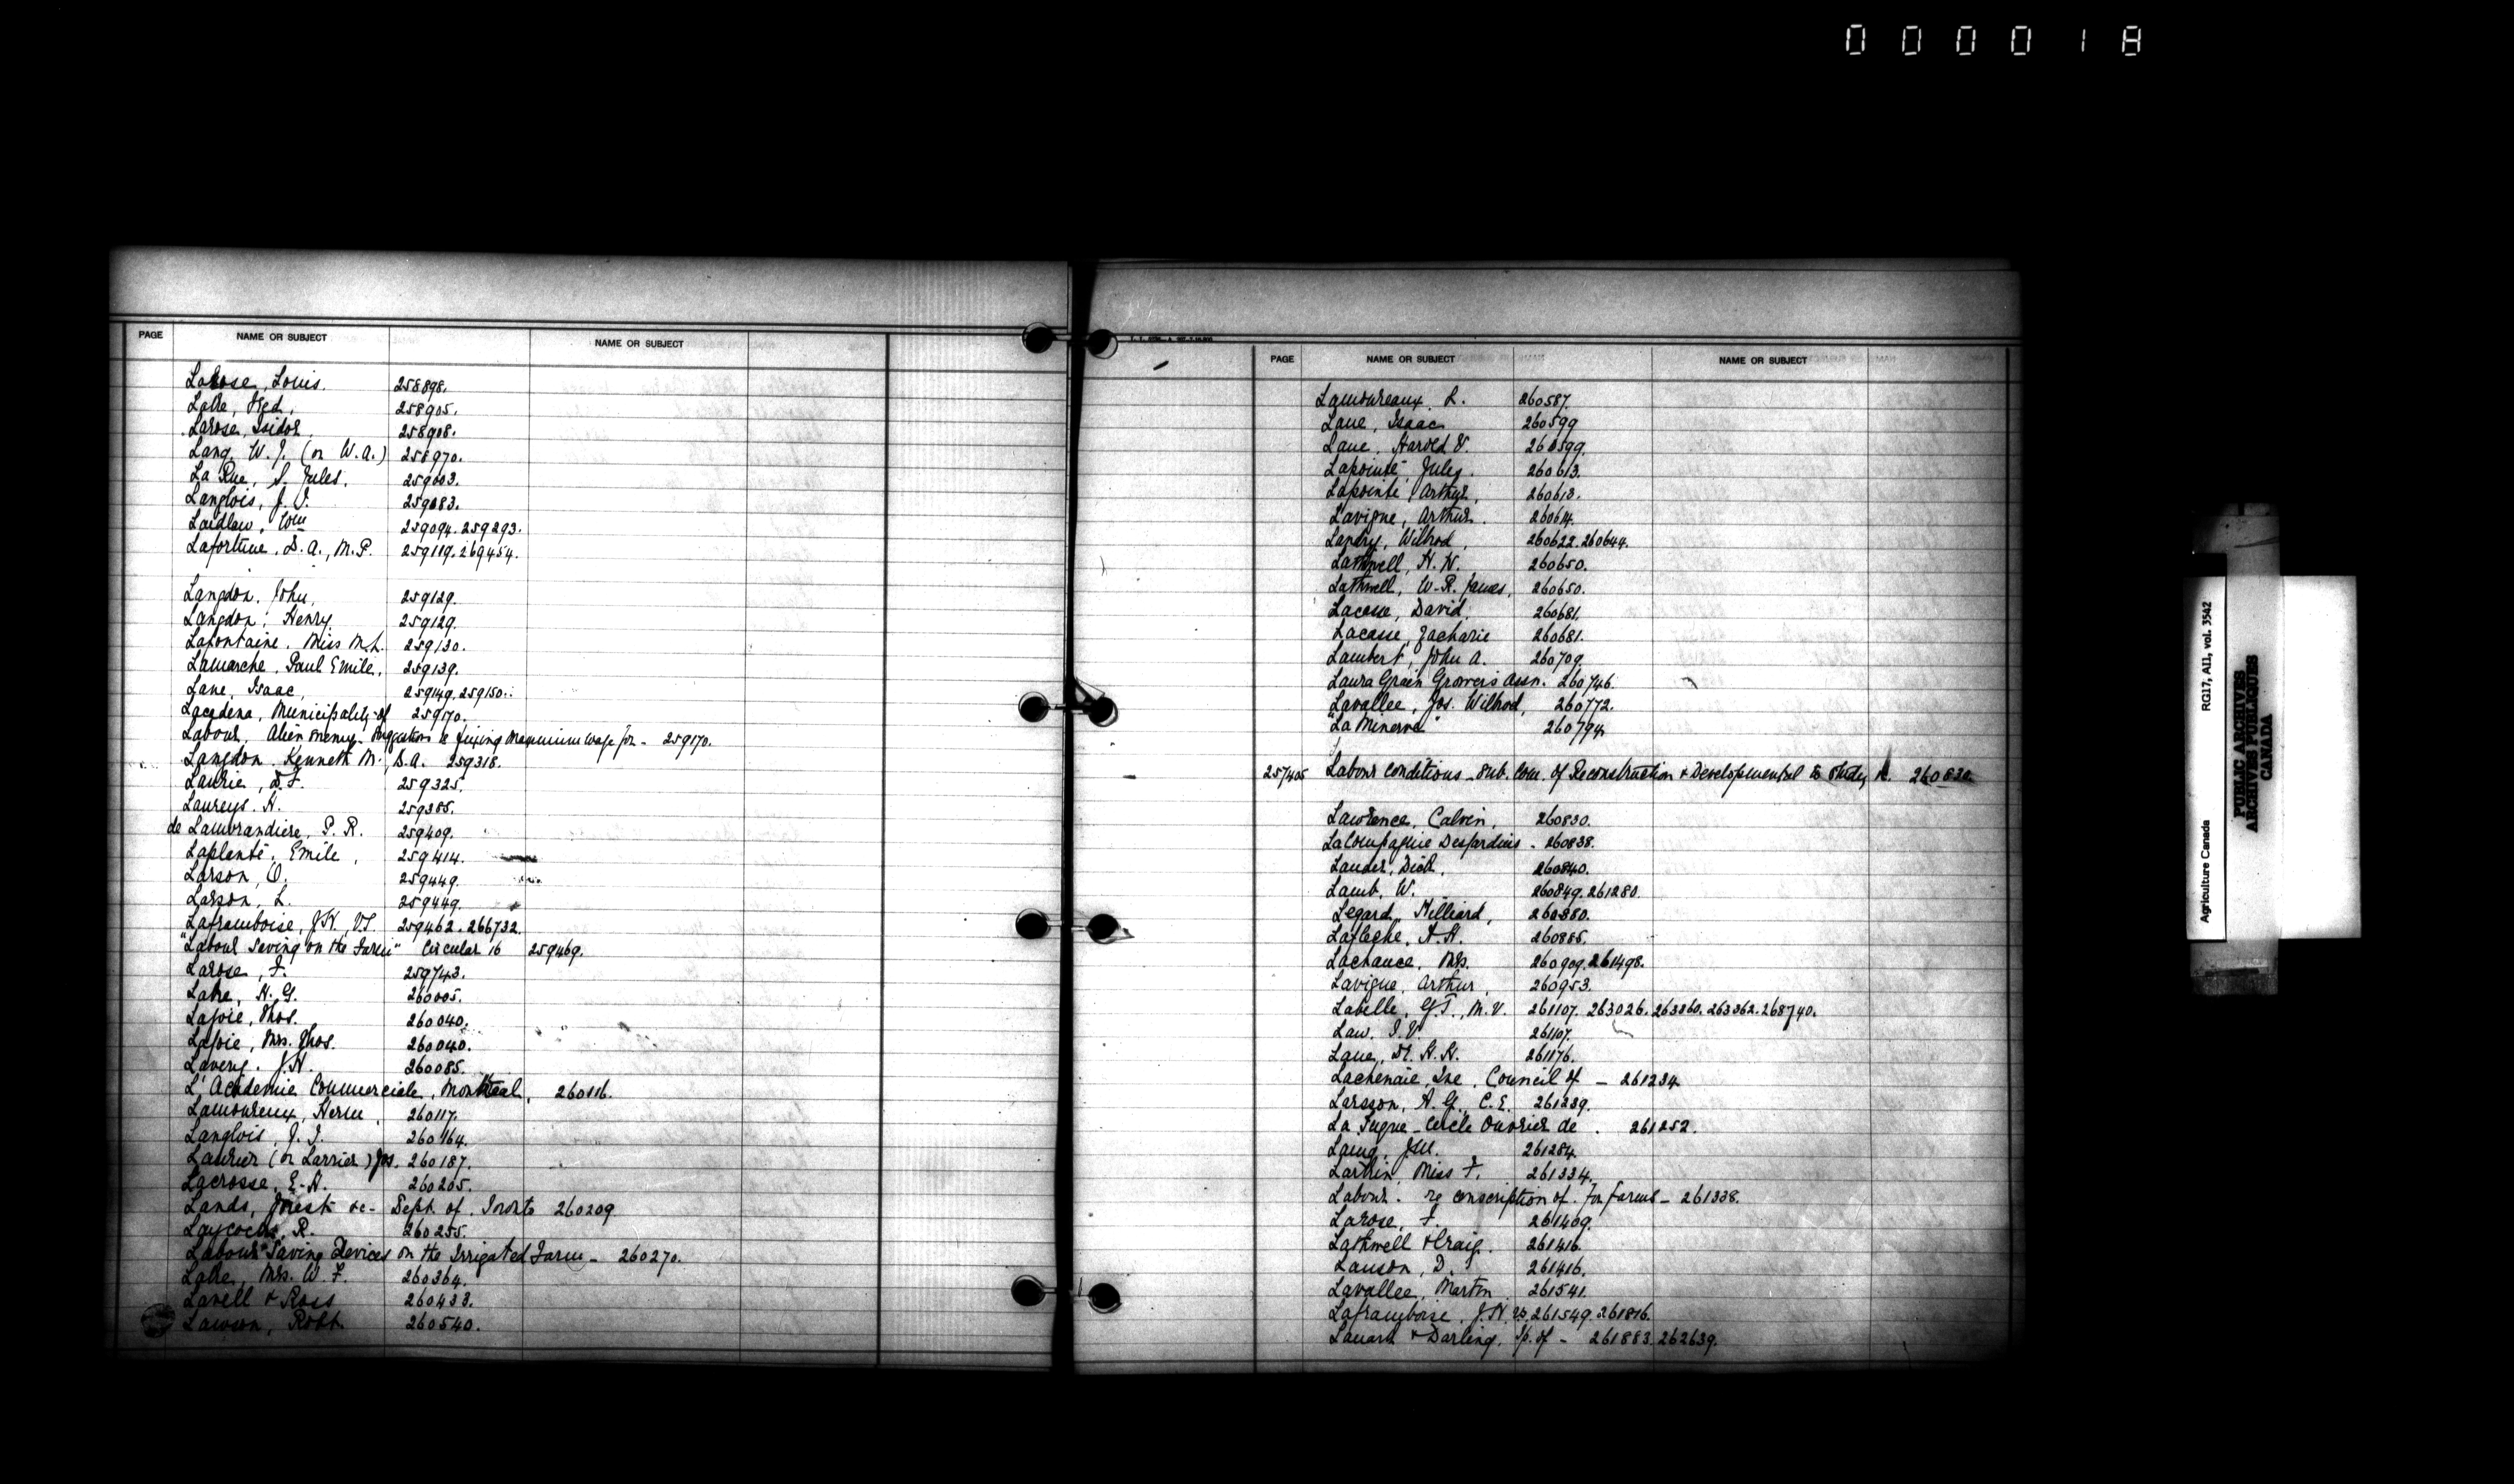 000018
PAGE NAME OR SUBJECT NAME OR SUBJECT
Larose, Louis. 258898.
Lake, Fred, 258905.
Larose, Isidor, 258908.
Lang, W. J. (or W.A.) 258970.
La Rue, S. Jules, 259003.
Langlois, J. O. 259083.
Laidlaw, Wm 259094. 259293.
Lafortune, D. A., M.P. 259119. 269454.
Langdon, John, 259129.
Langdon, Henry 259129.
Lafontaine, Miss M.L. 259130.
Lamarche, Paul Emile, 259139.
Lane, Isaac, 259149. 259150.
Lacadena, Municipality of 259170.
Labour, Alien Enemy - Suggestion re fixing Maximum Wage for - 259170.
Langdon Kenneth M., B.A. 259318.
Laurie, D.F. 259325.
Laureys. H. 259385.
de Lamorandiere, P. R. 259409.
Laplante, Emile, 259414.
Larson, O. 259449.
Larson, L. 259449.
Laframboise, J.H., V.S. 259462. 266732.
"Labour Saving on the Farm" Circular 16 259469.
Larose, F. 259743.
Lake, H. G. 260005.
Lajoie, Thos. 260040.
Lajoie, Mrs. Thos. 260040.
Lavery. J.H. 260085.
L'Académie Commerciale, Montreal, 260116.
Lamoureux, Herm, 260117.
Langlois, J. I. 260164.
Laurier (or Larrier) Jos. 260187.
Lacrosse, E. A. 260205.
Lands, Forest &c- Dept. of. Toronto 260209
Laycock, R. 260255.
Labour Saving Devices on the Irrigated Farm - 260270.
Lake, Mrs. W. F. 260364.
Lavell & Ross 260433.
Lawson, Robt. 260540.
PAGE NAME OR SUBJECT NAME OR SUBJECT
Lamoureaux L. 260587.
Lane, Isaac 260599
Lane, Harold V. 260599.
Lapointe, Jules. 260613.
Lapointe, Arthur, 260613.
Lavigne, Arthur. 260614.
Landry, Wilbrod, 260622. 260644.
Lathwell, H. W. 260650.
Lathwell, W. R. James, 260650.
Lacasse, David, 260681.
Lacasse, Zacharie 260681.
Lambert, John A. 260709.
Laura Grain Growers Assn. 260746.
Lavallee, Jos. Wilbrod, 260772.
"La Minerve" 260794.
257405 Labour Conditions - Sub. Com. of Reconstruction & Developmental to Study 260830.
Lawrence, Calvin, 260830.
La Compagnie Desjardins - 260838.
Lauder, Dick, 260840.
Lamb, W. 260849. 261280.
Legard, Milliard, 260880.
Lafleche, A.H. 260885.
Lachance, Mrs. 260909. 261498.
Lavigne, Arthur, 260953.
Labelle, G.T., M.V. 261107. 263026. 263360. 263362. 268740.
Law. I. V. 261107.
Lane, M. H. H. 261176.
Lachenaie, Ile, Council of - 261234
Larsson, A. G., C.E. 261239.
La Tuque - Cercle Ouvrier de. 261252.
Laing, J.M. 261284.
Larkin, Miss F. 261334.
Labour. re conscription of. for farms - 261338.
Larose, F. 261409.
Lathwell & Craig. 261416.
Lawson, D. 261416.
Lavallee, Martin 261541.
Laframboise, J.H. VS. 261549. 261816.
Lauart & Darling, Sp. of - 261883. 262639.
Agriculture Canada RG17, AII, vol. 3542
PUBLIC ARCHIVES
ARCHIVES PUBLIQUES
CANADA